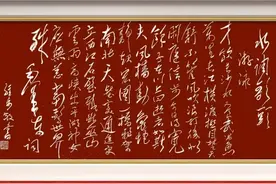 水调歌头
游泳
才饮长沙水又食武昌鱼
万里长江横渡极目楚天
舒不管风吹浪打胜似
闲庭信步今日得宽
馀子在川上曰逝者如斯
夫风樯动龟蛇
静起宏图一桥飞架
南北天堑变通途更
立西江石壁截断巫山
云雨高峡出平湖神女
应无恙当惊世界
殊毛泽东词